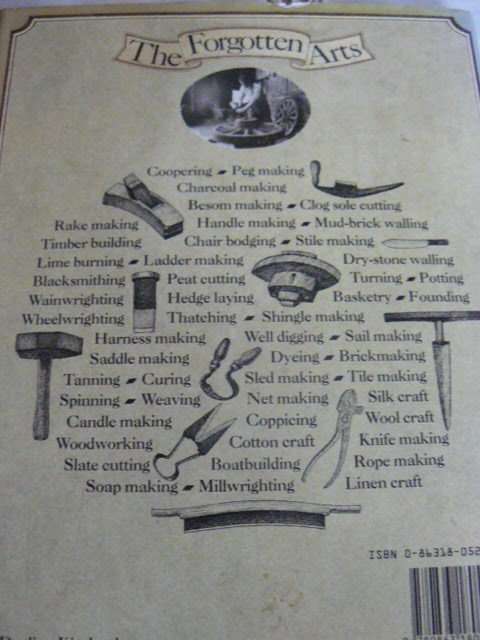 The Forgotten Arts
Coopering - Peg making
Charcoal making
Besom making - Clog sole cutting
Rake making Handle making - Mud-brick walling
Timber building Chair bodging - Stile making
Lime burning - Ladder making Dry-stone walling
Blacksmithing Peat cutting Turning - Potting
Wainwrighting Hedge laying Basketry - Founding
Wheelwrighting Thatching - Shingle making
Harness making Well digging - Sail making
Saddle making Dyeing - Brickmaking
Tanning - Curing Sled making - Tile making
Spinning - Weaving Net making Silk craft
Candle making Coppicing Wool craft
Woodworking Cotton craft Knife making
Slate cutting Boatbuilding Rope making
Soap making - Millwrighting Linen craft
ISBN 0-86318-052